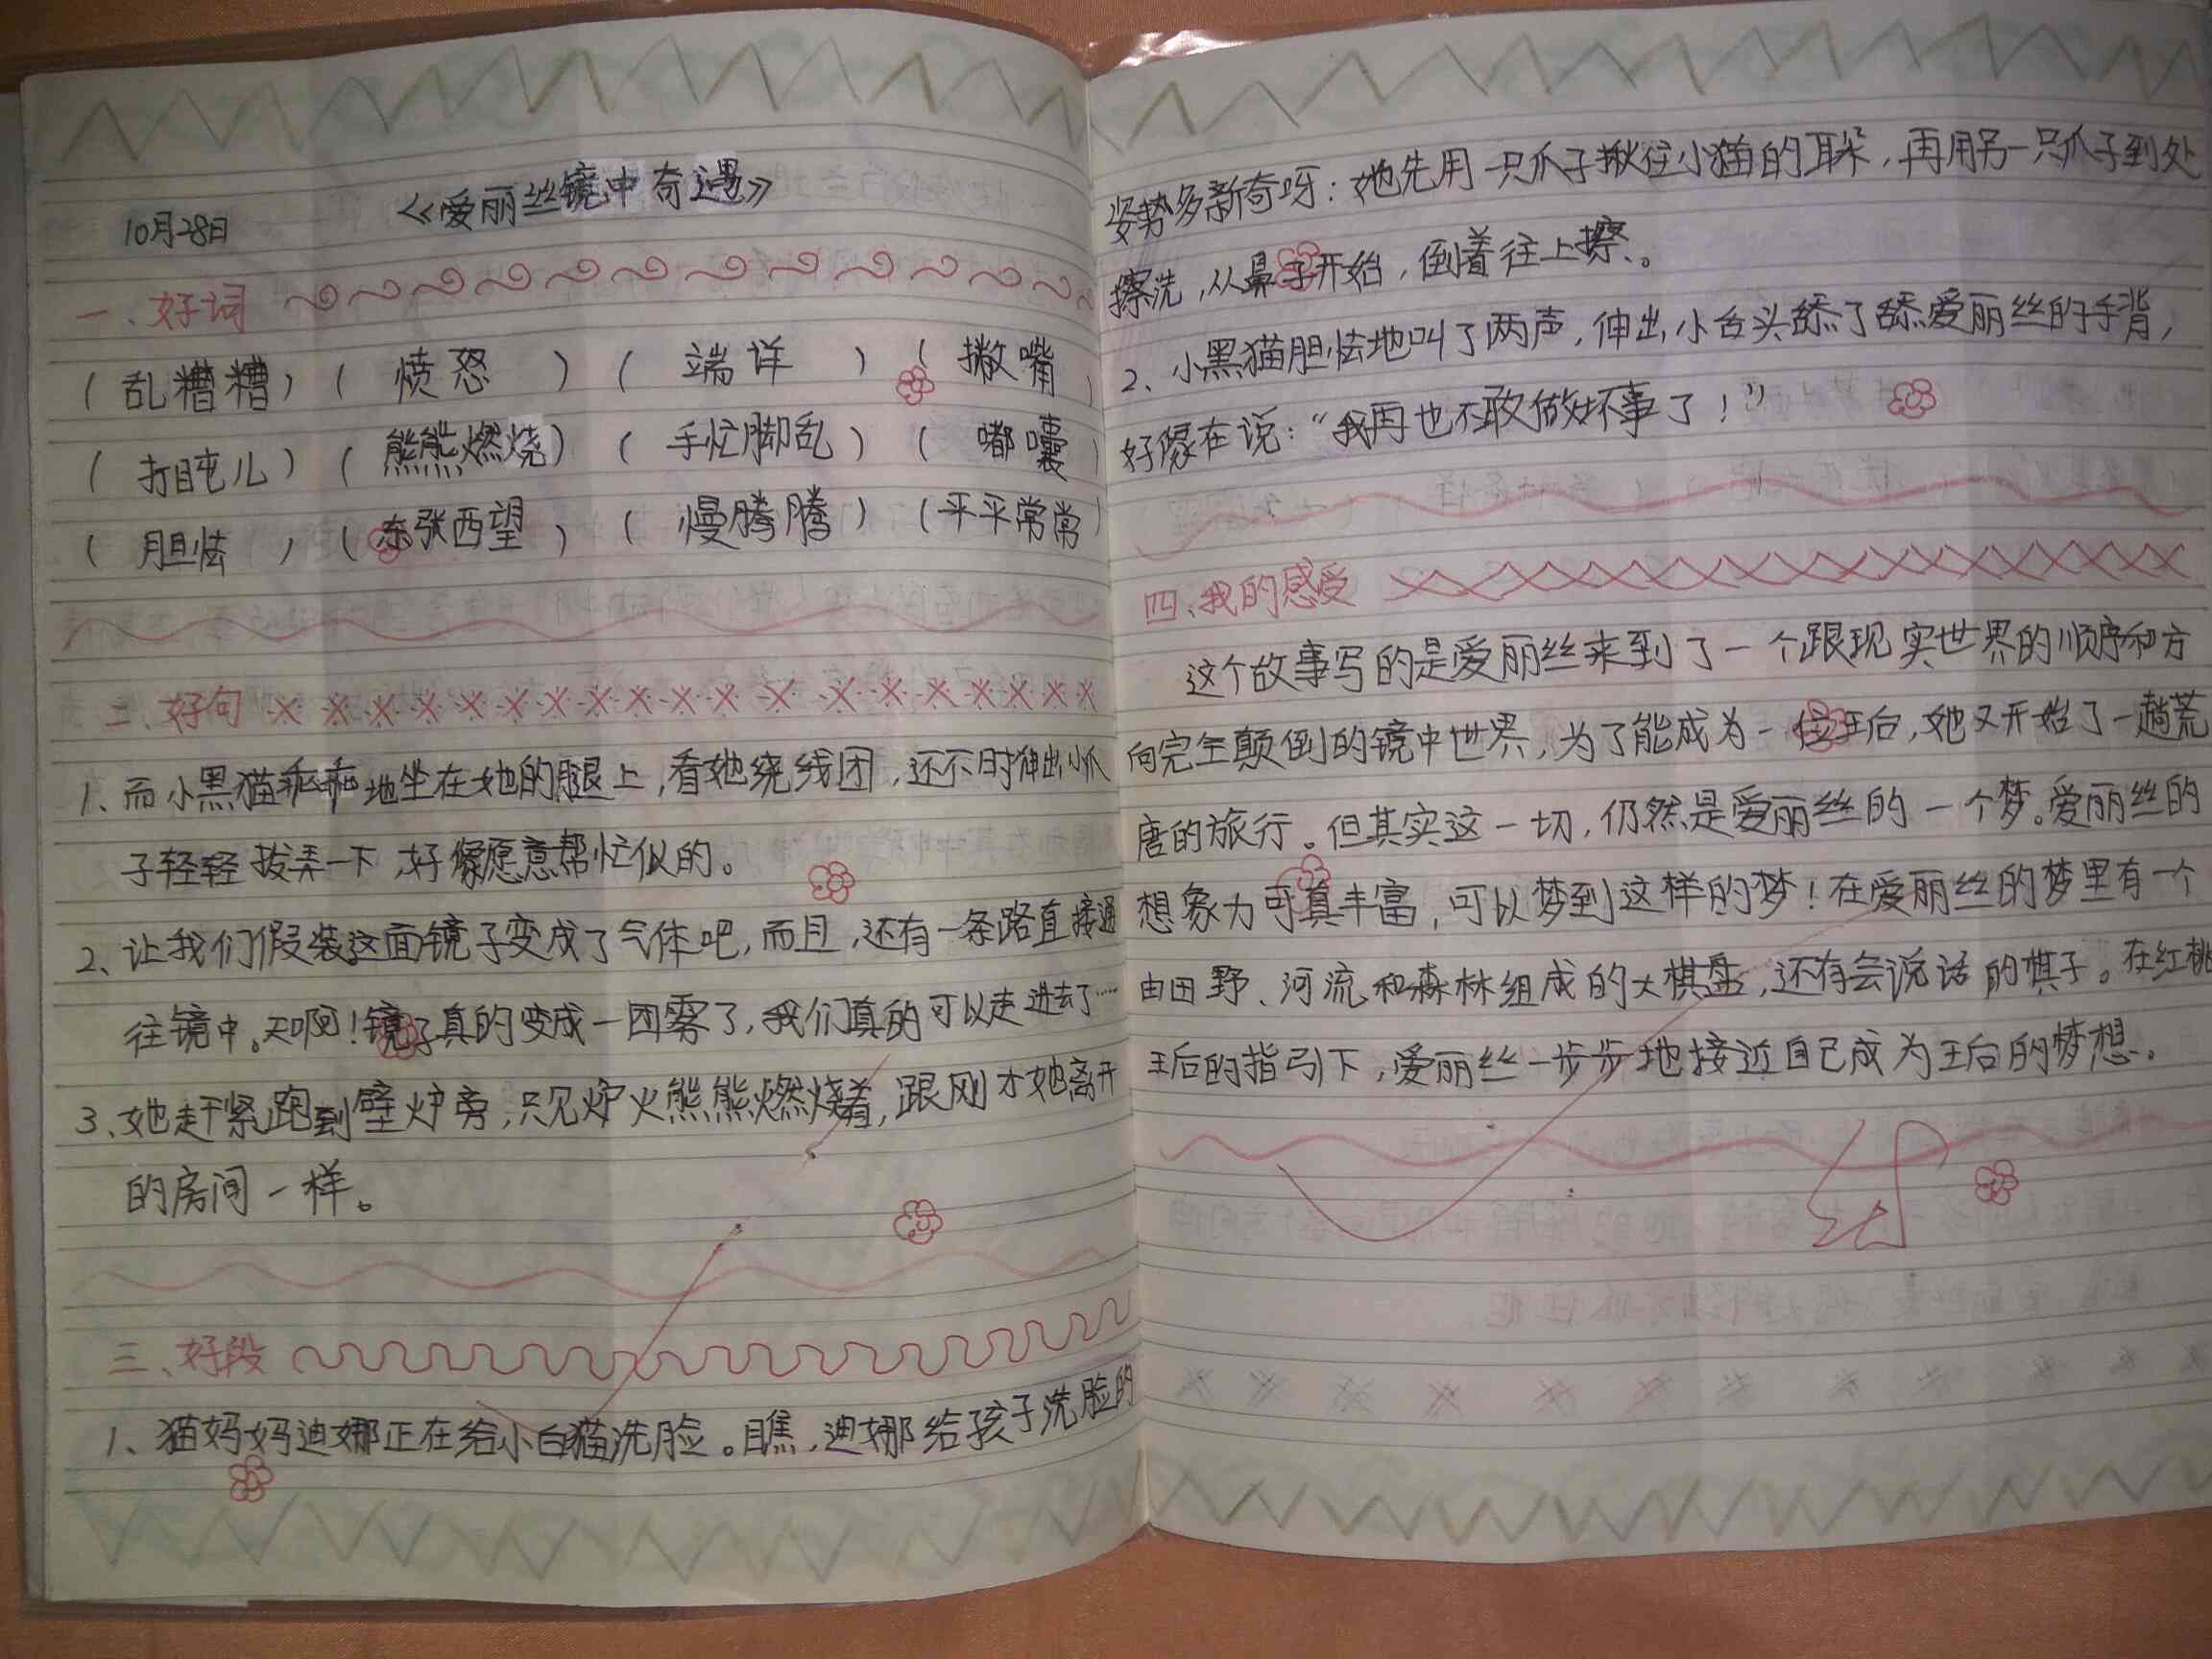 《爱丽丝镜中奇遇》
10月28日
一、好词
（乱糟糟）（愤怒）（端详）（撇嘴）
（打盹儿）（熊熊燃烧）（手忙脚乱）（嘟囔）
（胆怯）（东张西望）（慢腾腾）（平平常常）
二、好句
1、而小黑猫乖乖地坐在她的腿上，看她绕线团，还不时伸出小爪
子轻轻拨弄一下，好像愿意帮忙似的。
2、让我们假装这面镜子变成了气体吧，而且，还有一条路直接通
往镜中。天啊！镜子真的变成一团雾了，我们真的可以走进去了……
3、她赶紧跑到壁炉旁，只见炉火熊熊燃烧着，跟刚才她离开
的房间一样。
三、好段
1、猫妈妈迪娜正在给小白猫洗脸。瞧，迪娜给孩子洗脸的
姿势多新奇呀：她先用一只爪子揪住小猫的耳朵，再用另一只爪子到处
擦洗，从鼻子开始，倒着往上擦。
2、小黑猫胆怯地叫了两声，伸出小舌头舔了舔爱丽丝的手背，
好像在说：“我再也不敢做坏事了！”
四、我的感受
这个故事写的是爱丽丝来到了一个跟现实世界的顺序和方
向完全颠倒的镜中世界，为了能成为一位王后，她又开始了一趟荒
唐的旅行。但其实这一切，仍然是爱丽丝的一个梦。爱丽丝的
想象力可真丰富，可以梦到这样的梦！在爱丽丝的梦里有一个
由田野、河流和森林组成的大棋盘，还有会说话的棋子。在红桃
王后的指引下，爱丽丝一步步地接近自己成为王后的梦想。